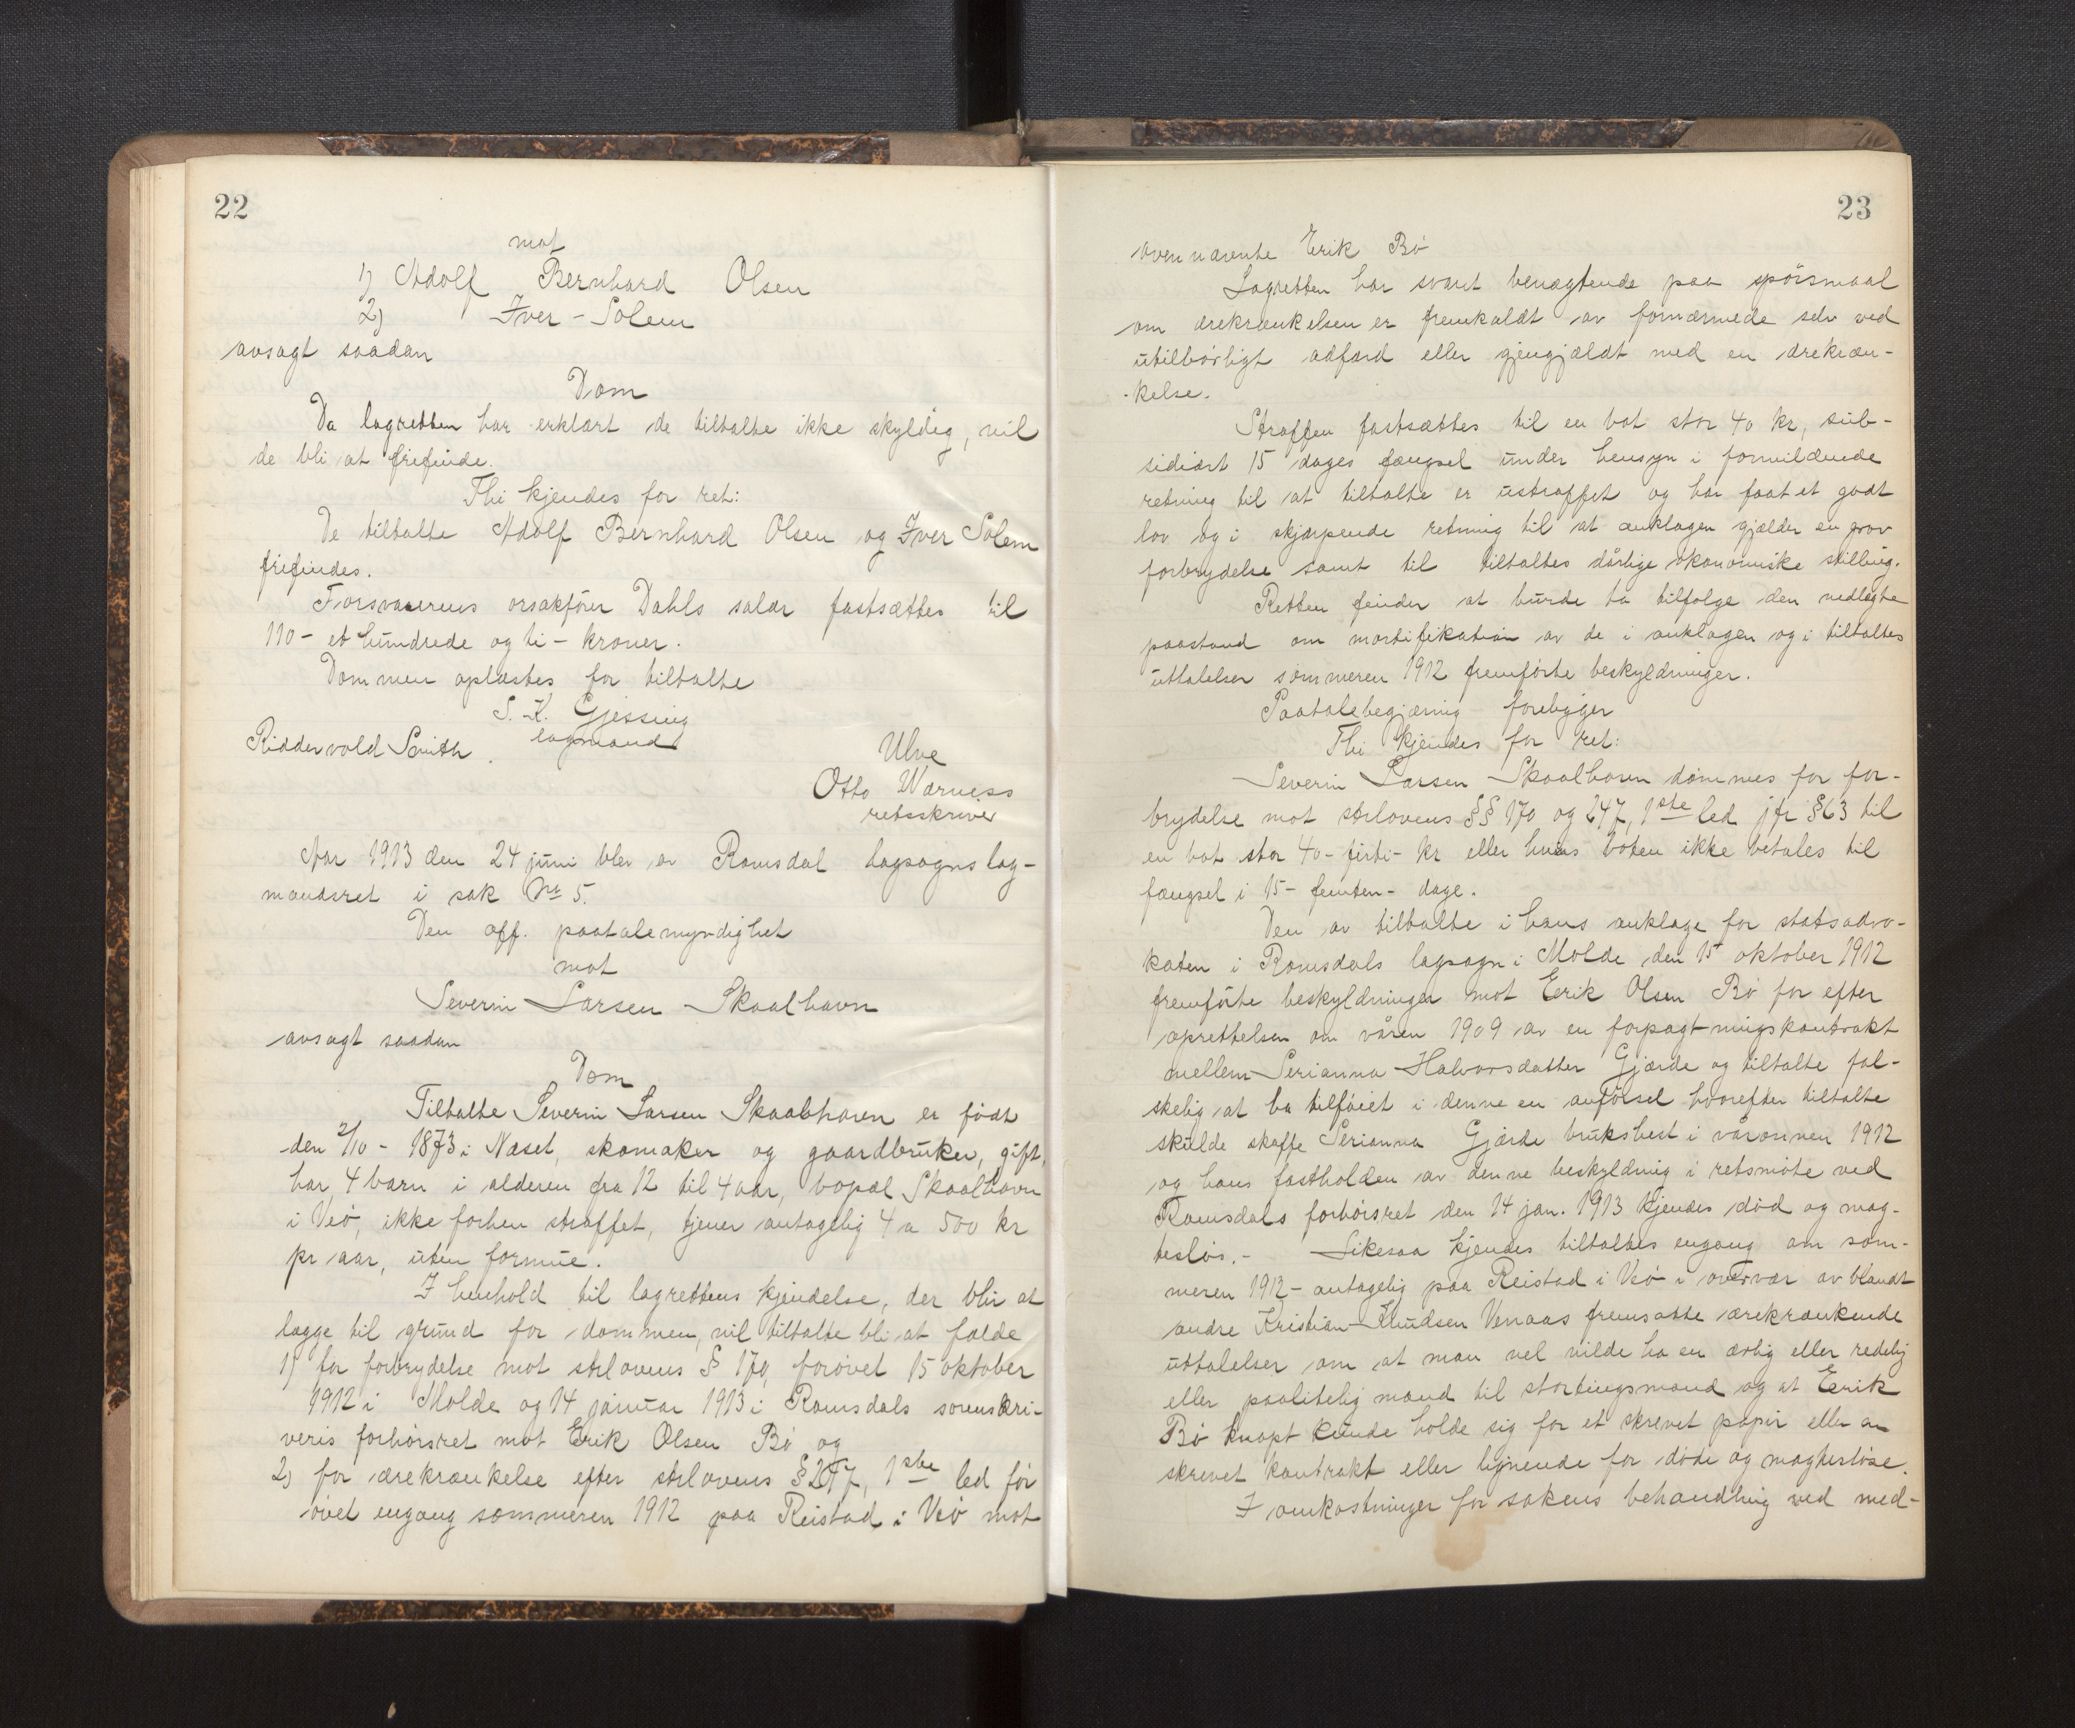 22
mot
1) Adolf Bernhard Olsen
2) Iver Solem
avsagt saadan
Dom
Da lagretten har erklært de tiltalte ikke skyldig, vil
de bli at frifinde.
Thi kjendes for ret:
De tiltalte Adolf Bernhard Olsen og Iver Solem
frifindes.
Forsvarerens orsakfører Dahls salær fastsættes til
110 - et hundrede og ti - kroner.
Dommen oplæstes for tiltalte
S. K. Gjessing
lagmand
Riddervold Smith.
Ulve
Otto Wærness
retsskriver
Aar 1913 den 24 juni blev av Romsdal lagsogns lag-
mandsret i sak Nr 5.
Den off. paatalemyndighet
mot
Severin Larsen Skaalhavn
avsagt saadan
Dom
Tiltalte Severin Larsen Skaalhavn er født
den 2/10 - 1873 i Næset, skomaker og gaardbruker, gift,
har 4 barn i alderen fra 12 til 4 aar, bopæl Skaalhavn
i Veø, ikke forhen straffet, tjener antagelig 4 a 500 kr
pr aar, uten formue.
I henhold til lagrettens kjendelse, der blir at
lægge til grund for dommen, vil tiltalte bli at fælde
1) for forbrydelse mot strlovens § 170, forøvet 15 oktober
1912 i Molde og 14 januar 1913 i Romsdals sorenskri-
veris forhørsret mot Erik Olsen Bø og
2) for ærekrænkelse efter strlovens § 247, 1ste led for
øvet engang sommeren 1912 paa Reistad i Veø mot
23
ovennævnte Erik Bø
Lagretten har svaret benægtende paa spørsmaal
om ærekrænkelsen er fremkaldt av fornærmede selv ved
utilbørligt adfærd eller gjengjældt med en ærekræn-
-kelse.
Straffen fastsættes til en bot stor 40 kr, sub-
sidiært 15 dages fængsel under hensyn i formildende
retning til at tiltalte er ustraffet og har faat et godt
lov og i skjærpende retning til at anklagen gjælder en grov
forbrydelse samt til tiltaltes dårlige økonomiske stilling.
Retten finder at burde ta tilfølge den nedlagte
paastand om mortifikation av de i anklagen og i tiltaltes
uttalelser sommeren 1912 fremførte beskyldninger.
Paatalebegjæring foreligger
Thi kjendes for ret:
Severin Larsen Skaalhavn dømmes for for-
brydelse mot strlovens §§ 170 og 247, 1ste led jfr § 63 til
en bot stor 40 - firti - kr eller hvis boten ikke betales til
fængsel i 15 - femten - dage.
Den av tiltalte i hans anklage for statsadvo-
katen i Romsdals lagsogn i Molde den 15 oktober 1912
fremførte beskyldninger mot Erik Olsen Bø for efter
oprettelsen om våren 1909 av en forpagtningskontrakt
mellem Serianna Halvorsdatter Gjærde og tiltalte fal-
skelig at ha tilføiet i denne en anførsel hvorefter tiltalte
skulde skaffe Serianna Gjærde brukshest i våronnen 1912
og hans fastholden av denne beskyldning i retsmøte ved
Romsdals forhørsret den 14 jan. 1913 kjendes død og mag-
tesløs. - Likesaa kjendes tiltaltes engang om som-
meren 1912 - antagelig paa Reistad i Veø i overvær av blandt
andre Kristian Knudsen Venaas fremsatte ærekrænkende
uttalelser om at man vel vilde ha en ærlig eller redelig
eller paalitelig mand til stortingsmand og at Erik
Bø knapt kunde holde sig for et skrevet papir eller en
skrevet kontrakt eller lignende for døde og magtesløse.
I omkostninger for sakens behandling ved med-